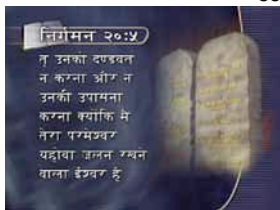 निर्गमन २०:५
तू उनको दण्डवत
न करना और न
उनकी उपासना
करना क्योंकि मै
तेरा परमेश्वर
यहोवा जलन रखने
वाला ईश्वर हूँ